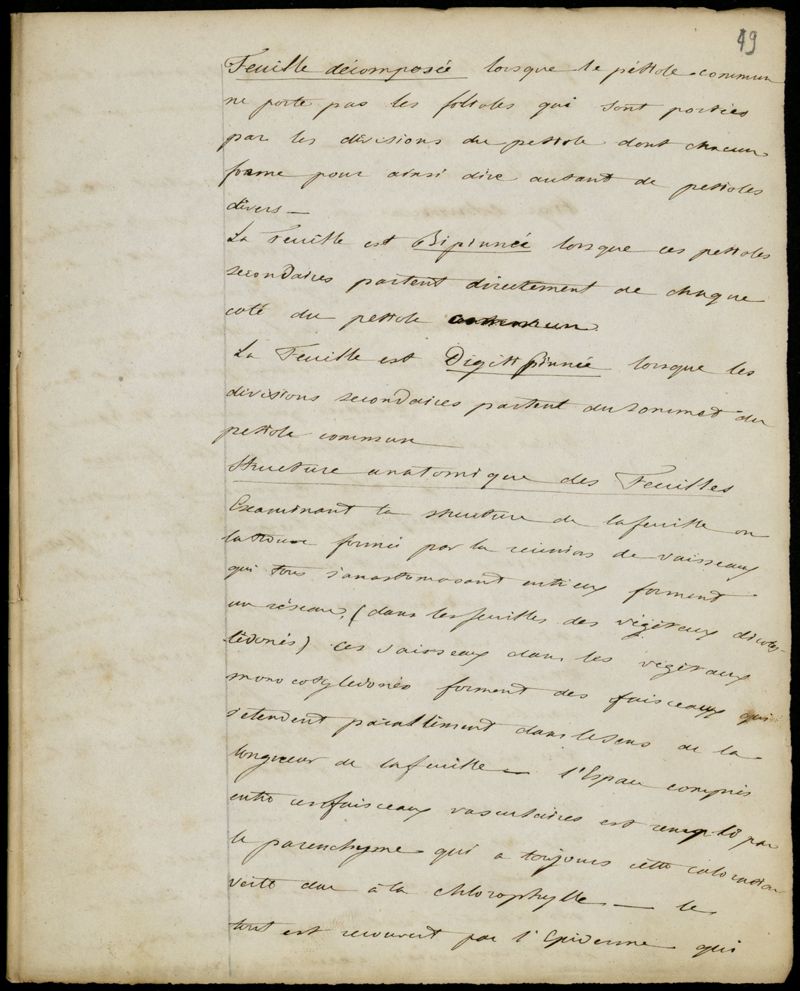 49
Feuille décomposée lorsque le pétiole commun
ne porte pas les folioles qui sont portées
par les divisions du petiole dont chacune
forme pour ainsi dire autant de petioles
divers —
La Feuille est Bipinnée lorsque ces petioles
secondaires partent directement de chaque
coté du petiole commun
La Feuille est Digitipinnée lorsque les
divisions secondaires partent du sommet du
petiole commun
Structure anatomique des Feuilles
Examinant la structure de la feuille on
la trouve formée par la réunion de vaisseaux
qui tous s'anastomosant entr'eux forment
un réseau, (dans les feuilles des végétaux dicoty-
lédonés) ces vaisseaux dans les végétaux
monocotyledonés forment des faisceaux qui
s'etendent parallement dans le sens de la
longueur de la feuille — l'Espace compris
entre ces faisceaux vasculaires est rempli par
le parenchyme qui a toujours cette coloration
verte due à la chlorophylle — le
tout est recouvert par l'Epiderme qui